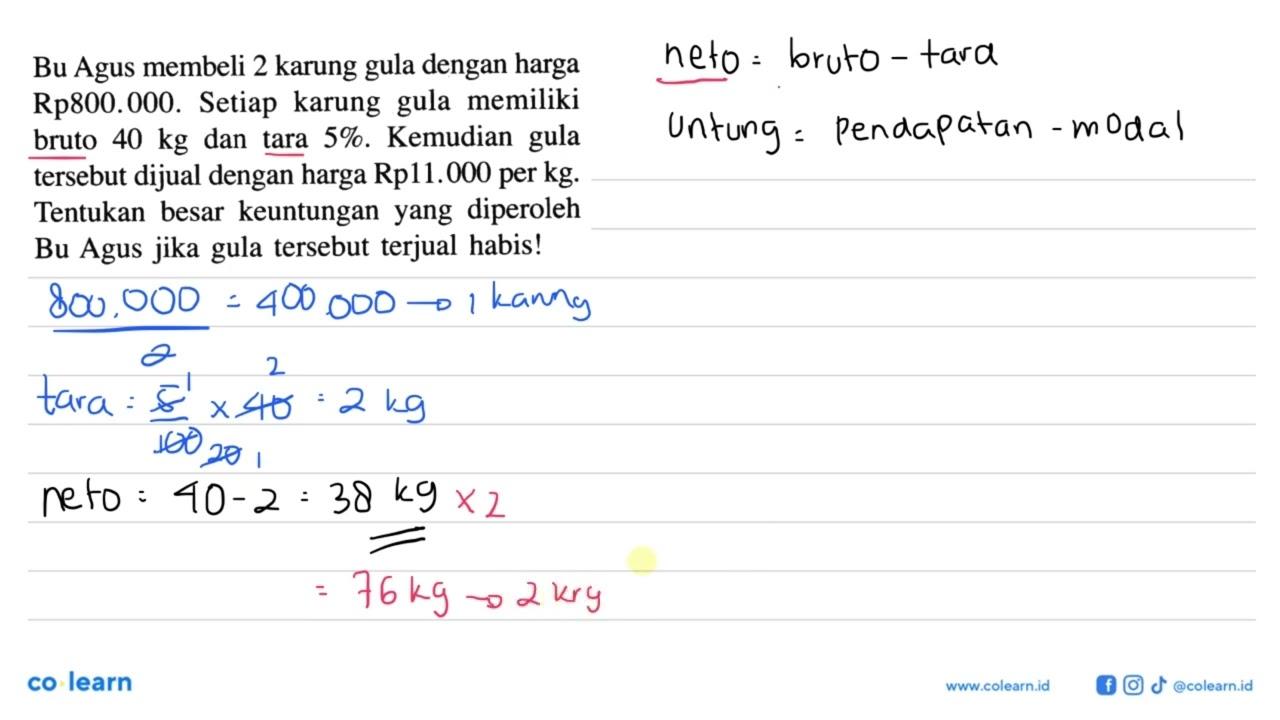 Bu Agus membeli 2 karung gula dengan harga
Rp800.000. Setiap karung gula memiliki
bruto 40 kg dan tara 5%. Kemudian gula
tersebut dijual dengan harga Rp11.000 per kg.
Tentukan besar keuntungan yang diperoleh
Bu Agus jika gula tersebut terjual habis!
neto = bruto - tara
Untung = pendapatan - modal
800.000 = 400.000 → 1 karung
2
1 2
tara = 5 x 40 = 2 kg
100 20 1
neto = 40 - 2 = 38 kg x 2
= 76 kg → 2 krg
co learn
www.colearn.id
@colearn.id